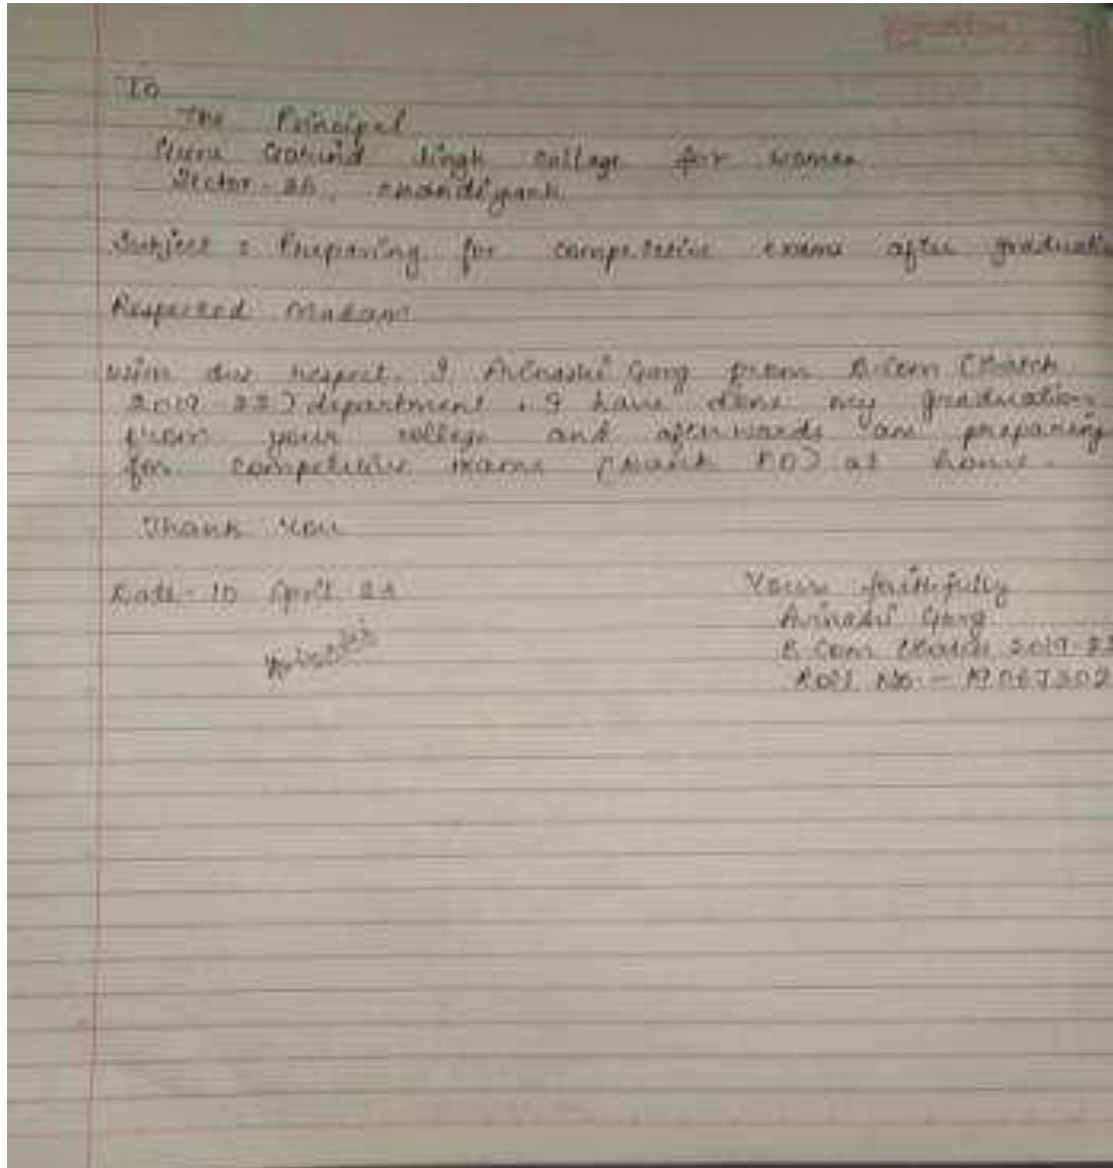 To
The Principal
Guru Gobind Singh College for Women
Sector - 26, Chandigarh
Subject : Preparing for competitive exams after graduation
Respected Madam
With due respect. I Avinashi Garg from B.Com (Batch
2019-22) department. I have done my graduation
from your college and afterwards am preparing
for competitive exams (Bank PO) at home.
Thank You
Date - 10 April
Yours faithfully
Avinashi Garg
B.Com (Batch 2019-22
Roll No. - 19067302